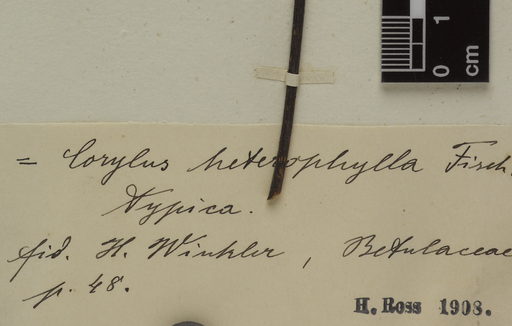 0 1
cm
= Corylus heterophylla Fisch.
typica.
fid. H. Winkler, Betulaceae
p. 48.
H. Ross 1908.